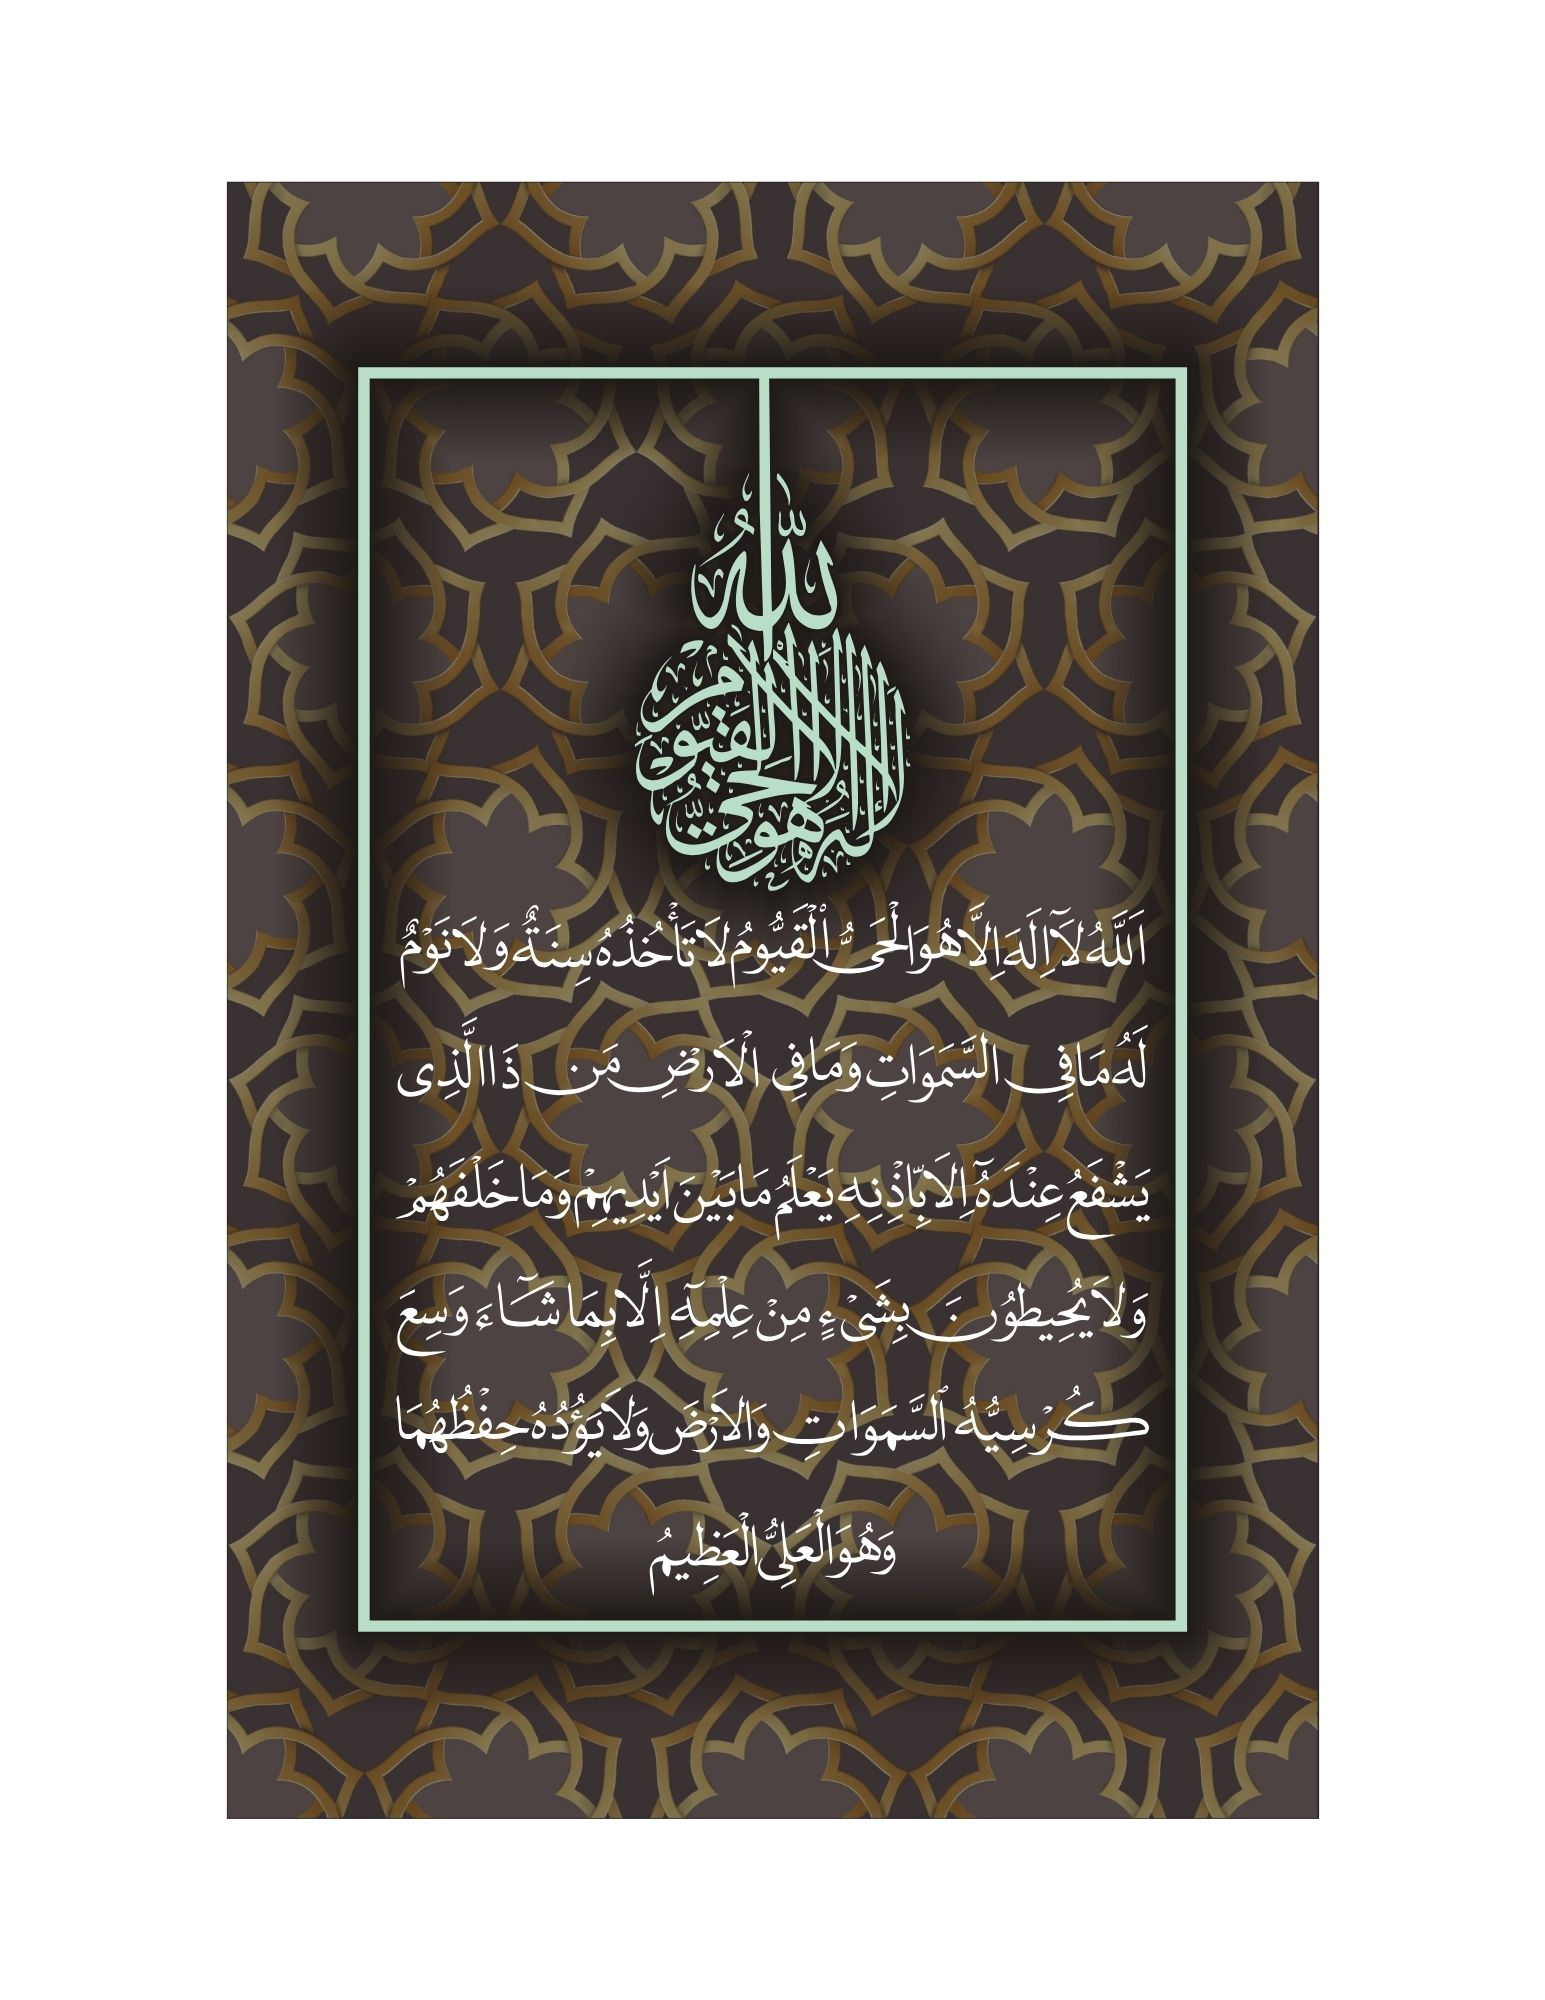 الله لا إله إلا هو الحي القيوم
اَللَّهُ لَآ اِلَهَ اِلَّا هُوَ الْحَىُّ الْقَيُّومُ لَا تَأْخُذُهُ سِنَةٌ وَلَا نَوْمٌ
لَهُ مَا فِى السَّمَوَاتِ وَمَا فِى الْاَرْضِ مَن ذَا الَّذِى
يَشْفَعُ عِنْدَهُٓ اِلَّا بِاِذْنِهِ يَعْلَمُ مَا بَيْنَ اَيْدِيهِمْ وَمَا خَلْفَهُمْ
وَلَا يُحِيطُونَ بِشَىْءٍ مِنْ عِلْمِهِٓ اِلَّا بِمَا شَآءَ وَسِعَ
كُرْسِيُّهُ السَّمَوَاتِ وَالْاَرْضَ وَلَا يَؤُدُهُ حِفْظُهُمَا
وَهُوَ الْعَلِىُّ الْعَظِيمُ